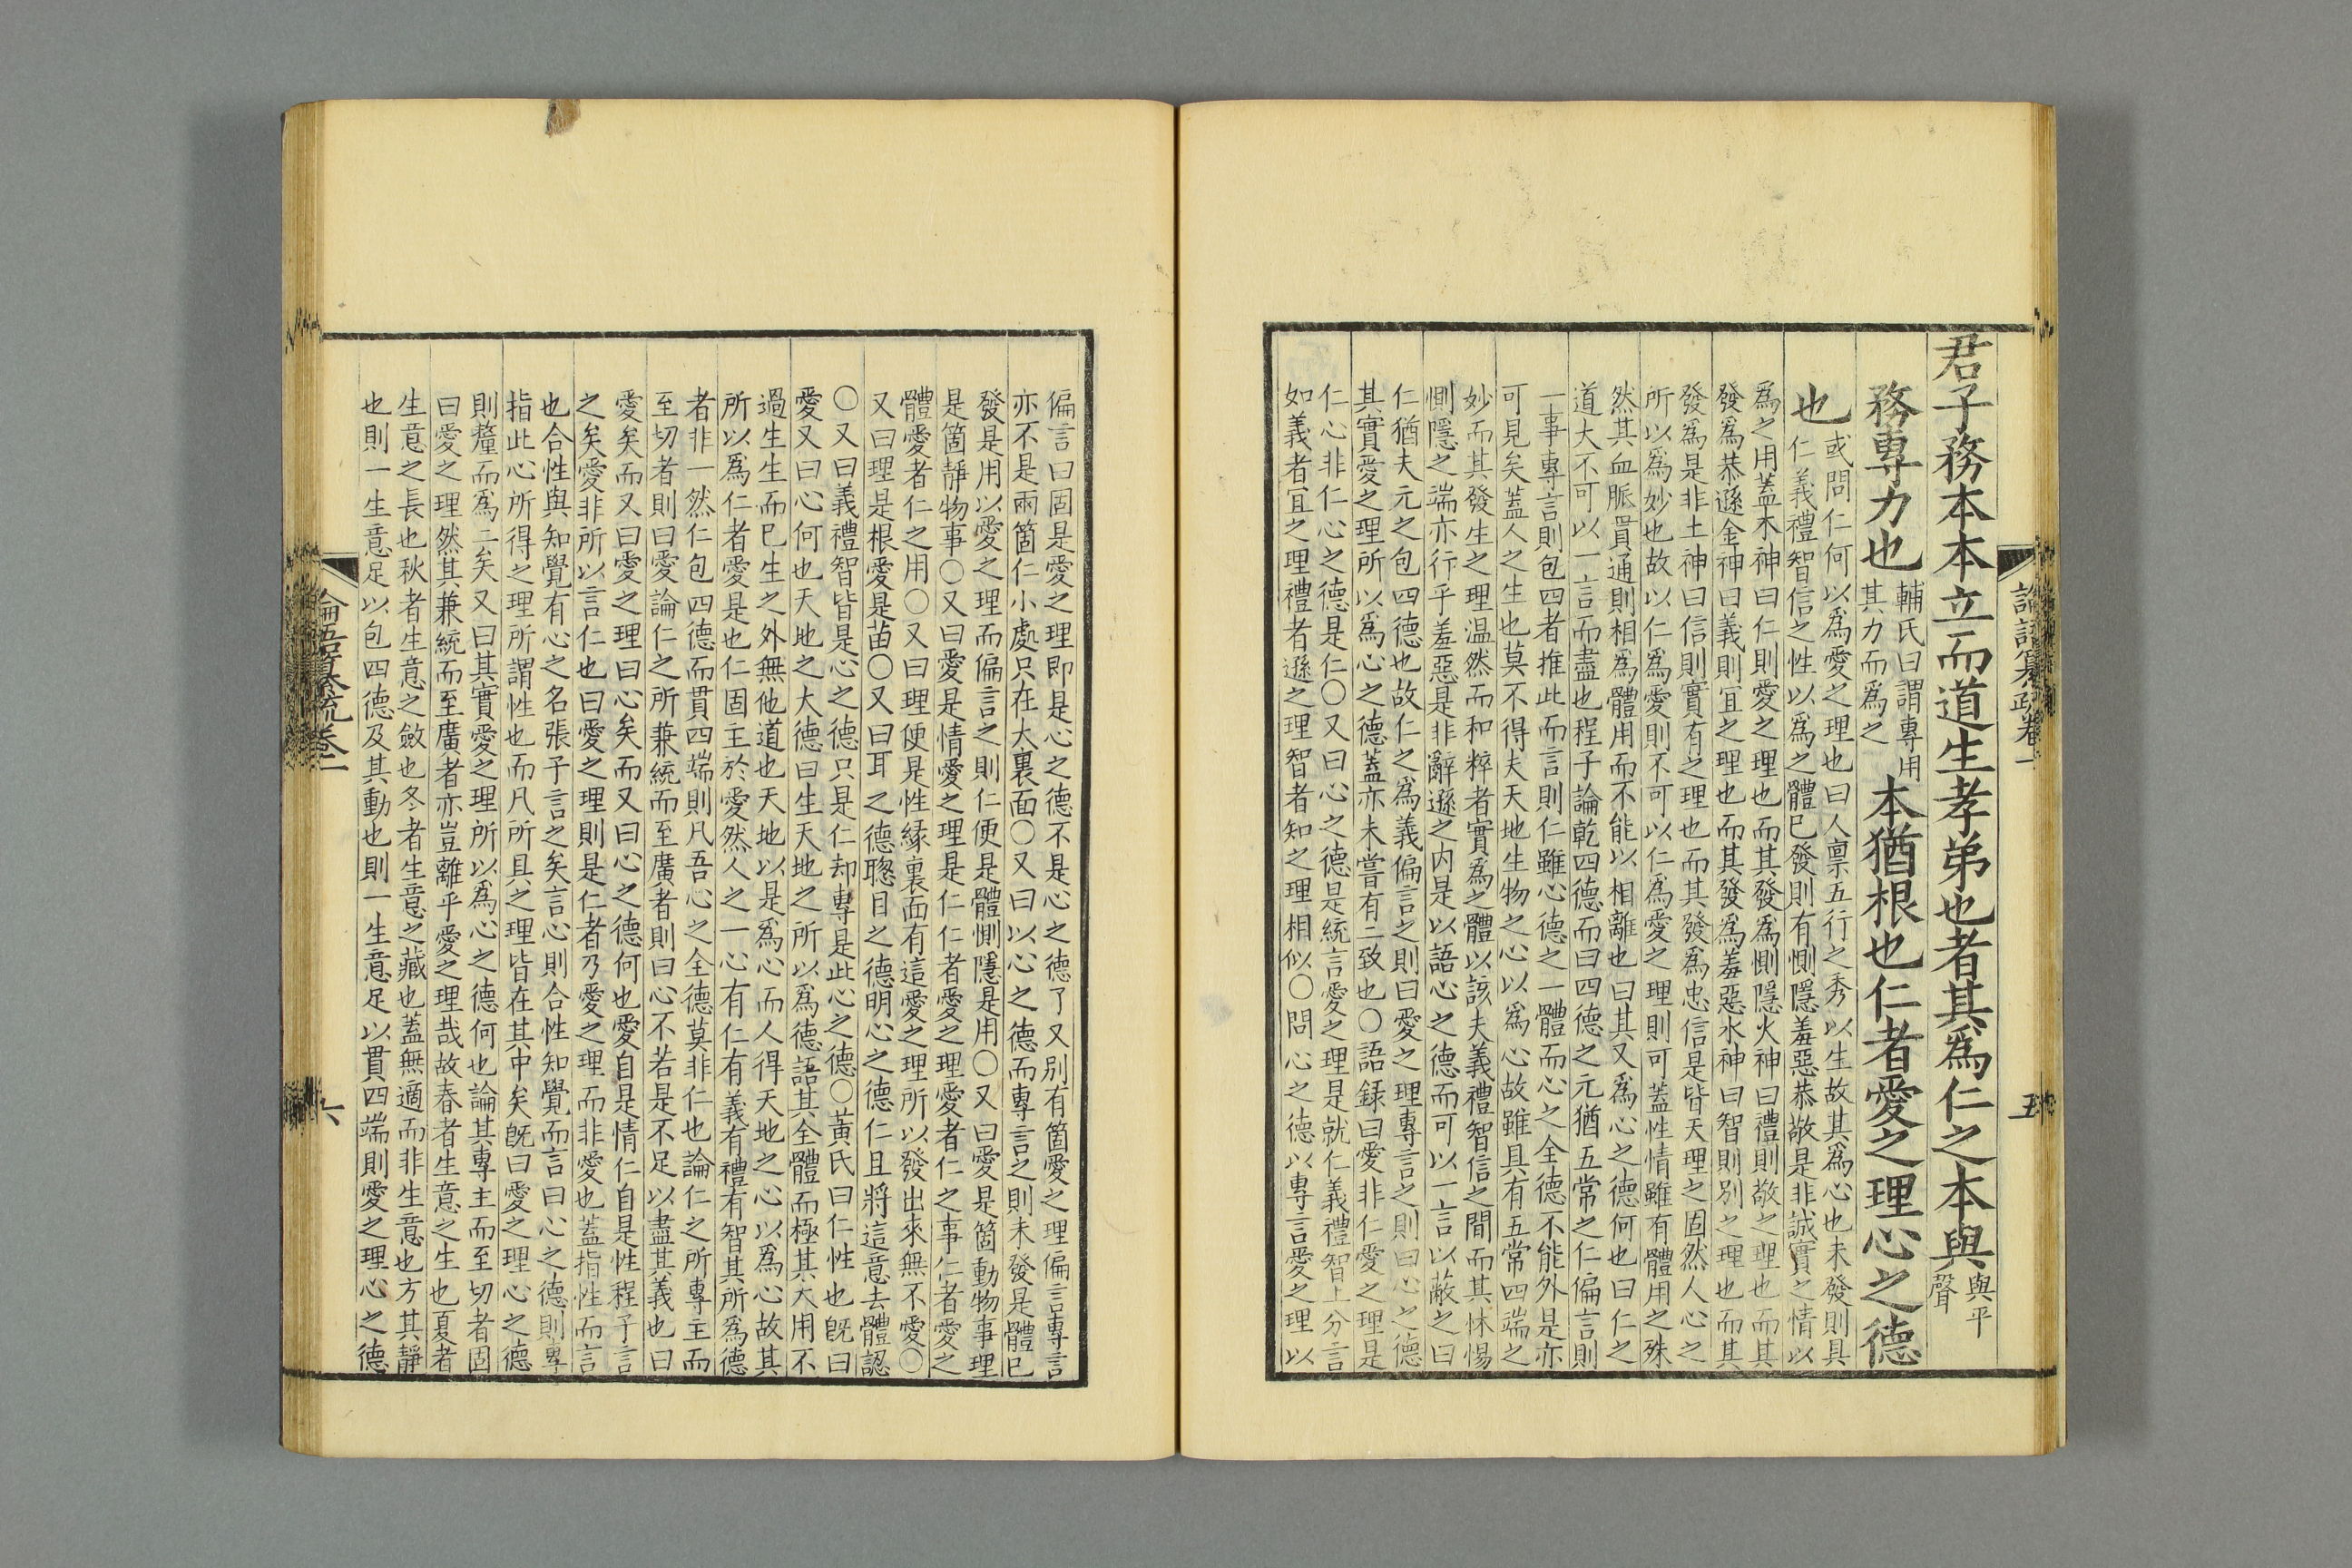 論語纂疏卷一
五
君子務本本立而道生孝弟也者其爲仁之本與
與平
聲
務專力也
輔氏曰謂專用
其力而爲之
本猶根也仁者愛之理心之德
也
或問仁何以爲愛之理也曰人禀五行之秀以生故其爲心也未發則具
仁義禮智信之性以爲之體已發則有惻隱羞惡恭敬是非誠實之情以
爲之用蓋木神曰仁則愛之理也而其發爲惻隱火神曰禮則敬之理也而其
發爲恭遜金神曰義則宜之理也而其發爲羞惡水神曰智則别之理也而其
發爲是非土神曰信則實有之理也而其發爲忠信是皆天理之固然人心之
所以爲妙也故以仁爲愛則不可以仁爲愛之理則可蓋性情雖有體用之殊
然其血脈貫通則相爲體用而不能以相離也曰其又爲心之德何也曰仁之
道大不可以一言而盡也程子論乾四德而曰四德之元猶五常之仁偏言則
一事專言則包四者推此而言則仁雖心德之一體而心之全德不能外是亦
可見矣蓋人之生也莫不得夫天地生物之心以爲心故雖具有五常四端之
妙而其發生之理温然而和粹者實爲之體以該夫義禮智信之間而其怵惕
惻隱之端亦行乎羞惡是非辭遜之内是以語心之德而可以一言以蔽之曰
仁猶夫元之包四德也故仁之爲義偏言之則曰愛之理專言之則曰心之德
其實愛之理所以爲心之德蓋亦未嘗有二致也○語録曰愛非仁愛之理是
仁心非仁心之德是仁○又曰心之德是統言愛之理是就仁義禮智上分言
如義者宜之理禮者遜之理智者知之理相似○問心之德以專言愛之理以
偏言曰固是愛之理即是心之德不是心之德了又别有箇愛之理偏言專言
亦不是兩箇仁小處只在大裏面○又曰以心之德而專言之則未發是體已
發是用以愛之理而偏言之則仁便是體惻隱是用○又曰愛是箇動物事理
是箇靜物事○又曰愛是情愛之理是仁仁者愛之理愛者仁之事仁者愛之
體愛者仁之用○又曰理便是性緣裏面有這愛之理所以發出來無不愛○
又曰理是根愛是苗○又曰耳之德聰目之德明心之德仁且將這意去體認
○又曰義禮智皆是心之德只是仁却專是此心之德○黃氏曰仁性也旣曰
愛又曰心何也天地之大德曰生天地之所以爲德語其全體而極其大用不
過生生而已生之外無他道也天地以是爲心而人得天地之心以爲心故其
所以爲仁者愛是也仁固主於愛然人之一心有仁有義有禮有智其所爲德
者非一然仁包四德而貫四端則凡吾心之全德莫非仁也論仁之所專主而
至切者則曰愛論仁之所兼統而至廣者則曰心不若是不足以盡其義也曰
愛矣而又曰愛之理曰心矣而又曰心之德何也愛自是情仁自是性程子言
之矣愛非所以言仁也曰愛之理則是仁者乃愛之理而非愛也蓋指性而言
也合性與知覺有心之名張子言之矣言心則合性知覺而言曰心之德則專
指此心所得之理所謂性也而凡所具之理皆在其中矣旣曰愛之理心之德
則釐而爲二矣又曰其實愛之理所以爲心之德何也論其專主而至切者固
曰愛之理然其兼統而至廣者亦豈離乎愛之理哉故春者生意之生也夏者
生意之長也秋者生意之斂也冬者生意之藏也蓋無適而非生意也方其靜
也則一生意足以包四德及其動也則一生意足以貫四端則愛之理心之德
論語纂疏卷一
六